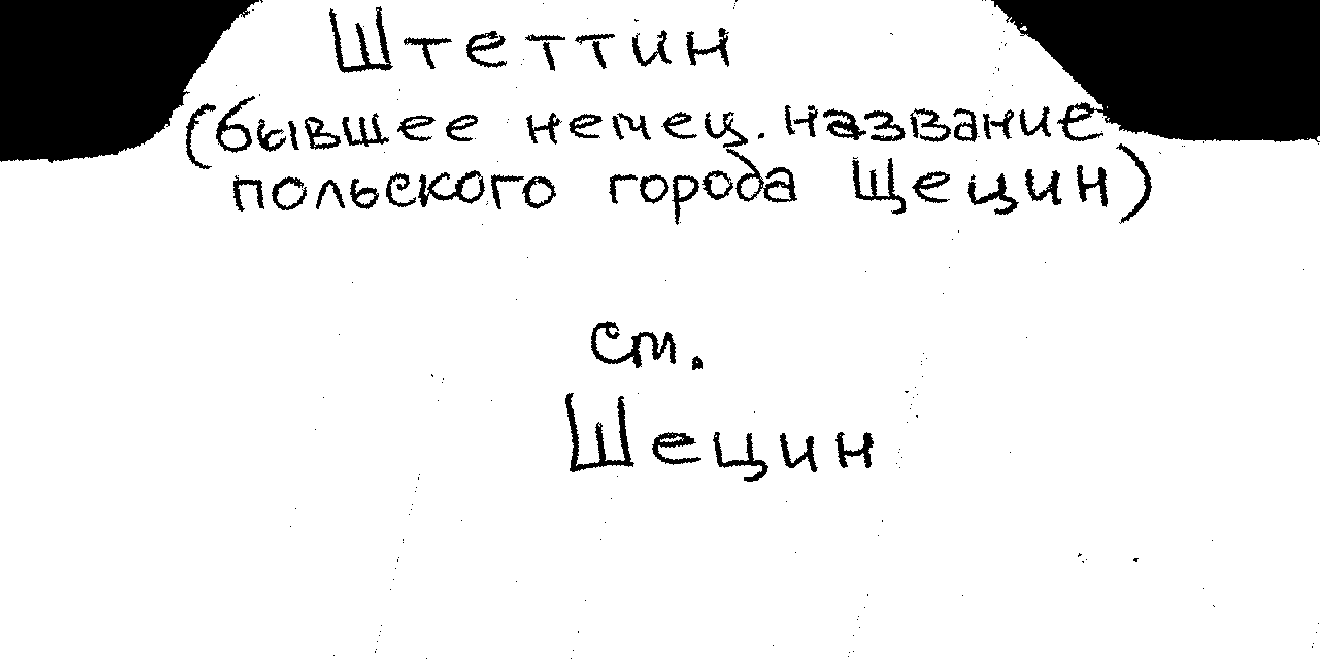 Штеттин
(бывшее немец. название
польского города Щецин)
см.
Шецин